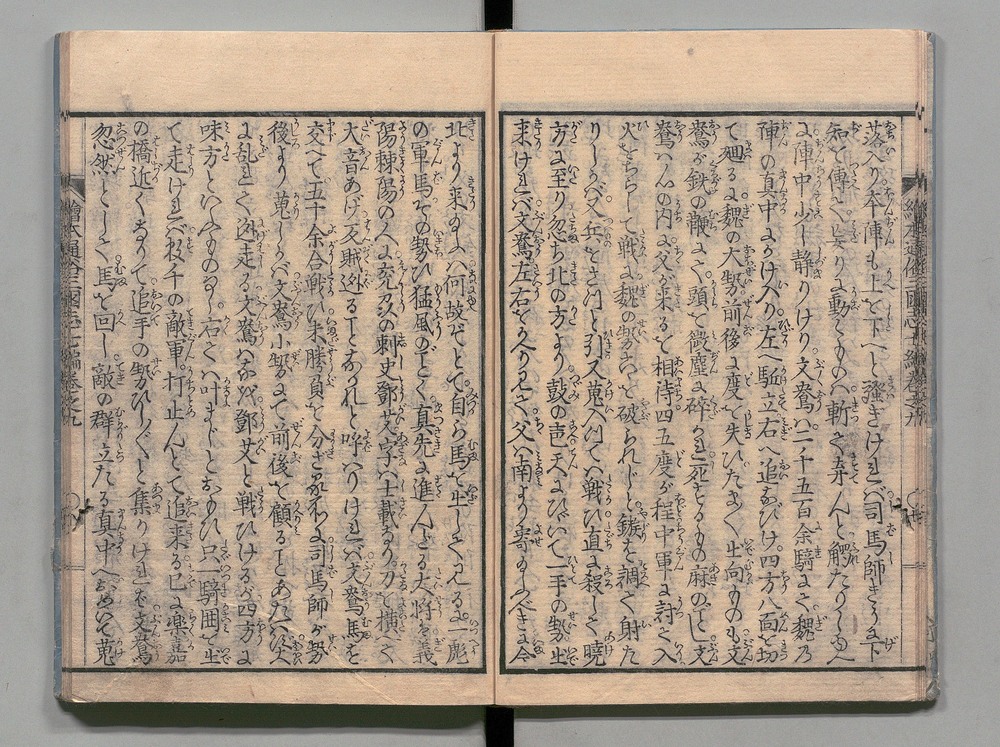 落入り本陣も上を下へと騒ぎければ司馬師きうに下
知を傳へ妄りに動くものは斬て弃んと觸たりしゆへ
に陣中少し静りけり文鴦ハ二千五百余騎にて魏の
陣の真中にかけ入り左へ駈立右へ追なびけ四方八面を切
て廻るに魏の大勢前後に度を失ひたまく出向ものも文
鴦が鉄の鞭にて頭を微塵に碎かれ死するもの麻のごとし文
鴦ハ心の内に父が来るを相待四五度が程中軍に討て入
火をちらして戦ふ魏の勢こゝを破られじと鏃を調へ射た
りしかバ文兵をさつと引又蒐入つてハ戦ひ直に殺して曉
方に至り忽ち北の方より鼓の声天にひゞいて一手の勢出
来けれバ文鴦左右をかへりミて父ハ南より寄すべきに今
北より来るハ何故ぞとて自ら馬を出して見るに一彪
の軍馬その勢ひ猛風のごとく真先に進んだる大将ハ義
陽棘陽の人に兗州の刺史鄧艾字ハ士載なり刀を横へて
大音あげ反賊逃ることなかれと呼ハりけれバ文鴦馬を
交へて五十余合戦ひ未勝負を分たざる処に司馬師が勢
後より蒐りしかバ文鴦小勢にて前後を顧ることあたハず
に乱れて逃走る文鴦ハなを鄧艾と戦ひけるが四方に
味方とハふものなし右てハ叶まじとおもひ只一騎囲を出
て走けれバ数千の敵軍打止んとて追来る已に楽嘉
の橋近くなりて追手の勢ひしくと集りけれど文鴦
忽然として馬を回し敵の群立たる真中へおめいて蒐
繪本通俗三國志七編巻之九